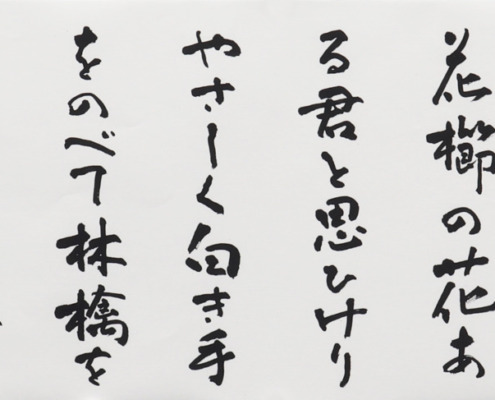 花櫛の花あ
る君と思ひけり
やさしく白き手
をのべて林檎を